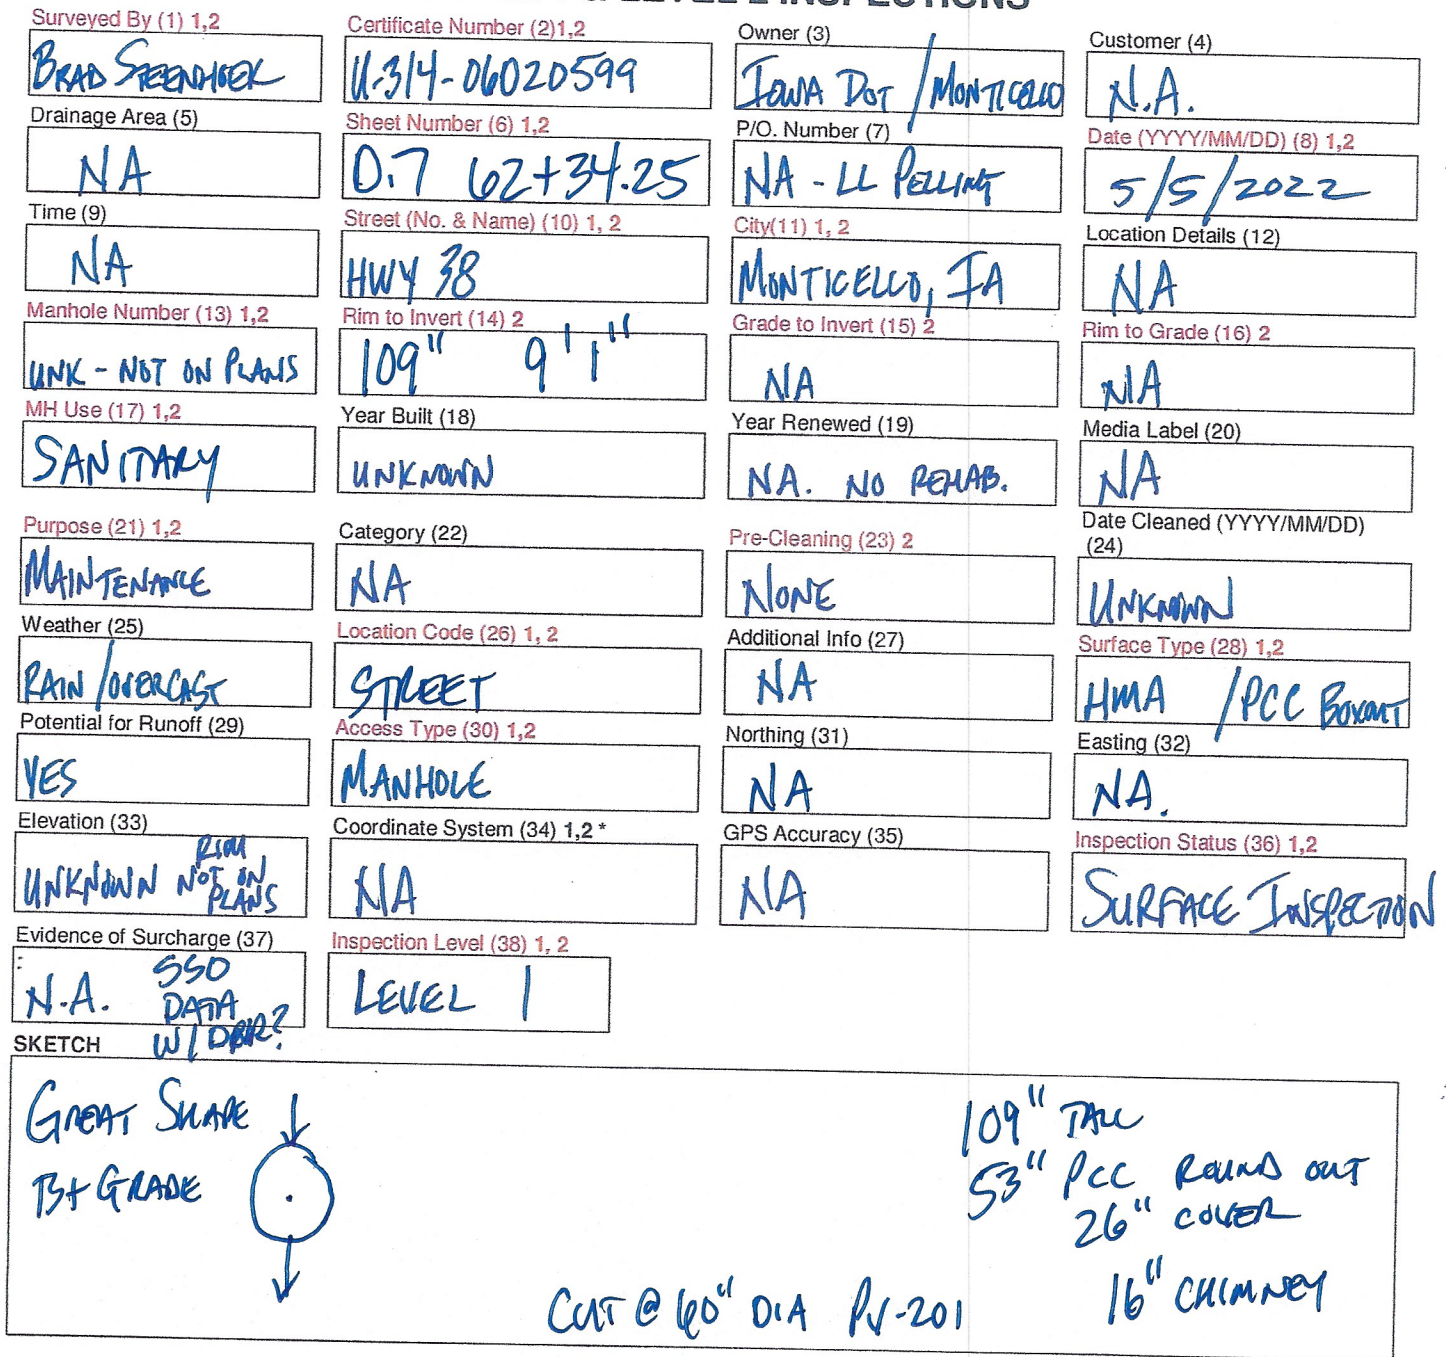 LEVEL 2 INSPECTIONS
Surveyed By (1) 1,2
BRAD STEENHOEK
Certificate Number (2)1,2
U-314-06020599
Owner (3)
IOWA DOT / MONTICELLO
Customer (4)
N.A.
Drainage Area (5)
NA
Sheet Number (6) 1,2
D.7 62+34.25
P/O. Number (7)
NA - LL PELLING
Date (YYYY/MM/DD) (8) 1,2
5/5/2022
Time (9)
NA
Street (No. & Name) (10) 1, 2
HWY 38
City(11) 1, 2
MONTICELLO, IA
Location Details (12)
NA
Manhole Number (13) 1,2
UNK - NOT ON PLANS
Rim to Invert (14) 2
109" 9'1"
Grade to Invert (15) 2
NA
Rim to Grade (16) 2
NA
MH Use (17) 1,2
SANITARY
Year Built (18)
UNKNOWN
Year Renewed (19)
NA. NO REHAB.
Media Label (20)
NA
Purpose (21) 1,2
MAINTENANCE
Category (22)
NA
Pre-Cleaning (23) 2
NONE
Date Cleaned (YYYY/MM/DD)
(24)
UNKNOWN
Weather (25)
RAIN / OVERCAST
Location Code (26) 1, 2
STREET
Additional Info (27)
NA
Surface Type (28) 1,2
HMA / PCC BOXOUT
Potential for Runoff (29)
YES
Access Type (30) 1,2
MANHOLE
Northing (31)
NA
Easting (32)
NA.
Elevation (33)
UNKNOWN RIM
NOT ON
PLANS
Coordinate System (34) 1,2 *
NA
GPS Accuracy (35)
NA
Inspection Status (36) 1,2
SURFACE INSPECTION
Evidence of Surcharge (37)
N.A. SSO
DATA
W/ DNR?
Inspection Level (38) 1, 2
LEVEL 1
SKETCH
GREAT SHAPE
B+ GRADE
109" TALL
53" PCC ROUND OUT
26" COVER
16" CHIMNEY
CUT @ 60" DIA PV-201